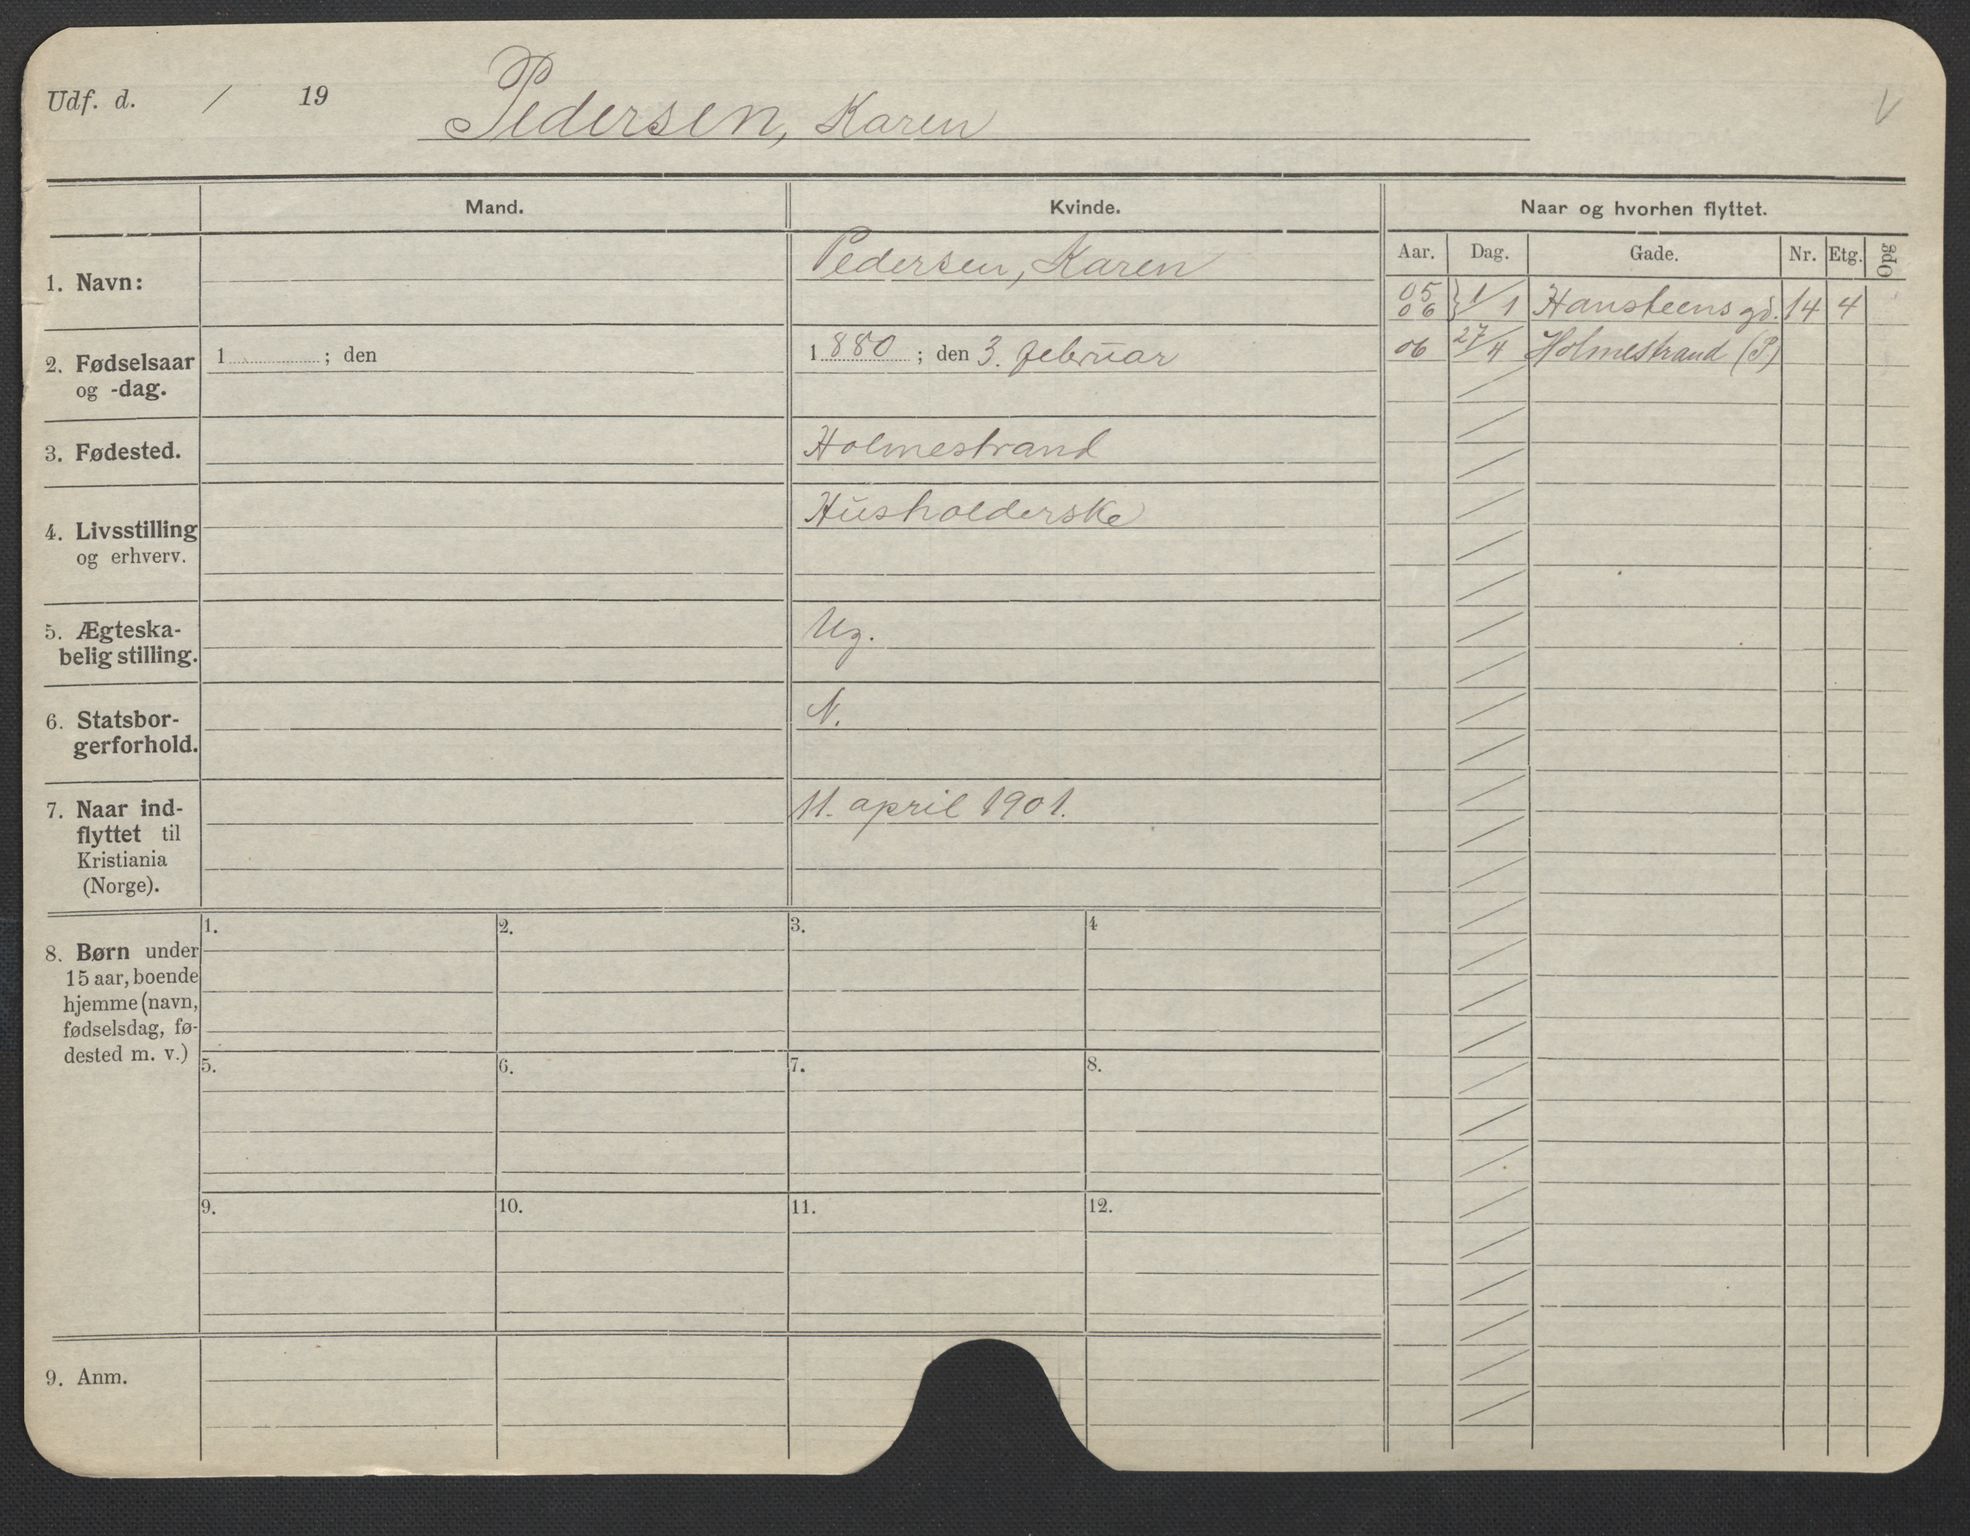 Udf. d. / 19 Pedersen, Karen V
Mand. Kvinde. Naar og hvorhen flyttet.
Aar. Dag. Gade. Nr. Etg. Opg
1. Navn: Pedersen, Karen
05
06 } 1/1 Hansteens gd. 14 4
2. Fødselsaar 1 ; den 1880 ; den 3. februar
og -dag.
06 27/4 Holmestrand (P)
3. Fødested. Holmestrand
4. Livsstilling Husholderske
og erhverv.
5. Ægteska- Ug.
belig stilling.
6. Statsbor- N.
gerforhold.
7. Naar ind- 11. april 1901.
flyttet til
Kristiania
(Norge).
1. 2. 3. 4
8. Børn under
15 aar, boende
hjemme (navn,
fødselsdag, fø-
dested m. v.)
5. 6. 7. 8.
9. 10. 11. 12.
9. Anm.